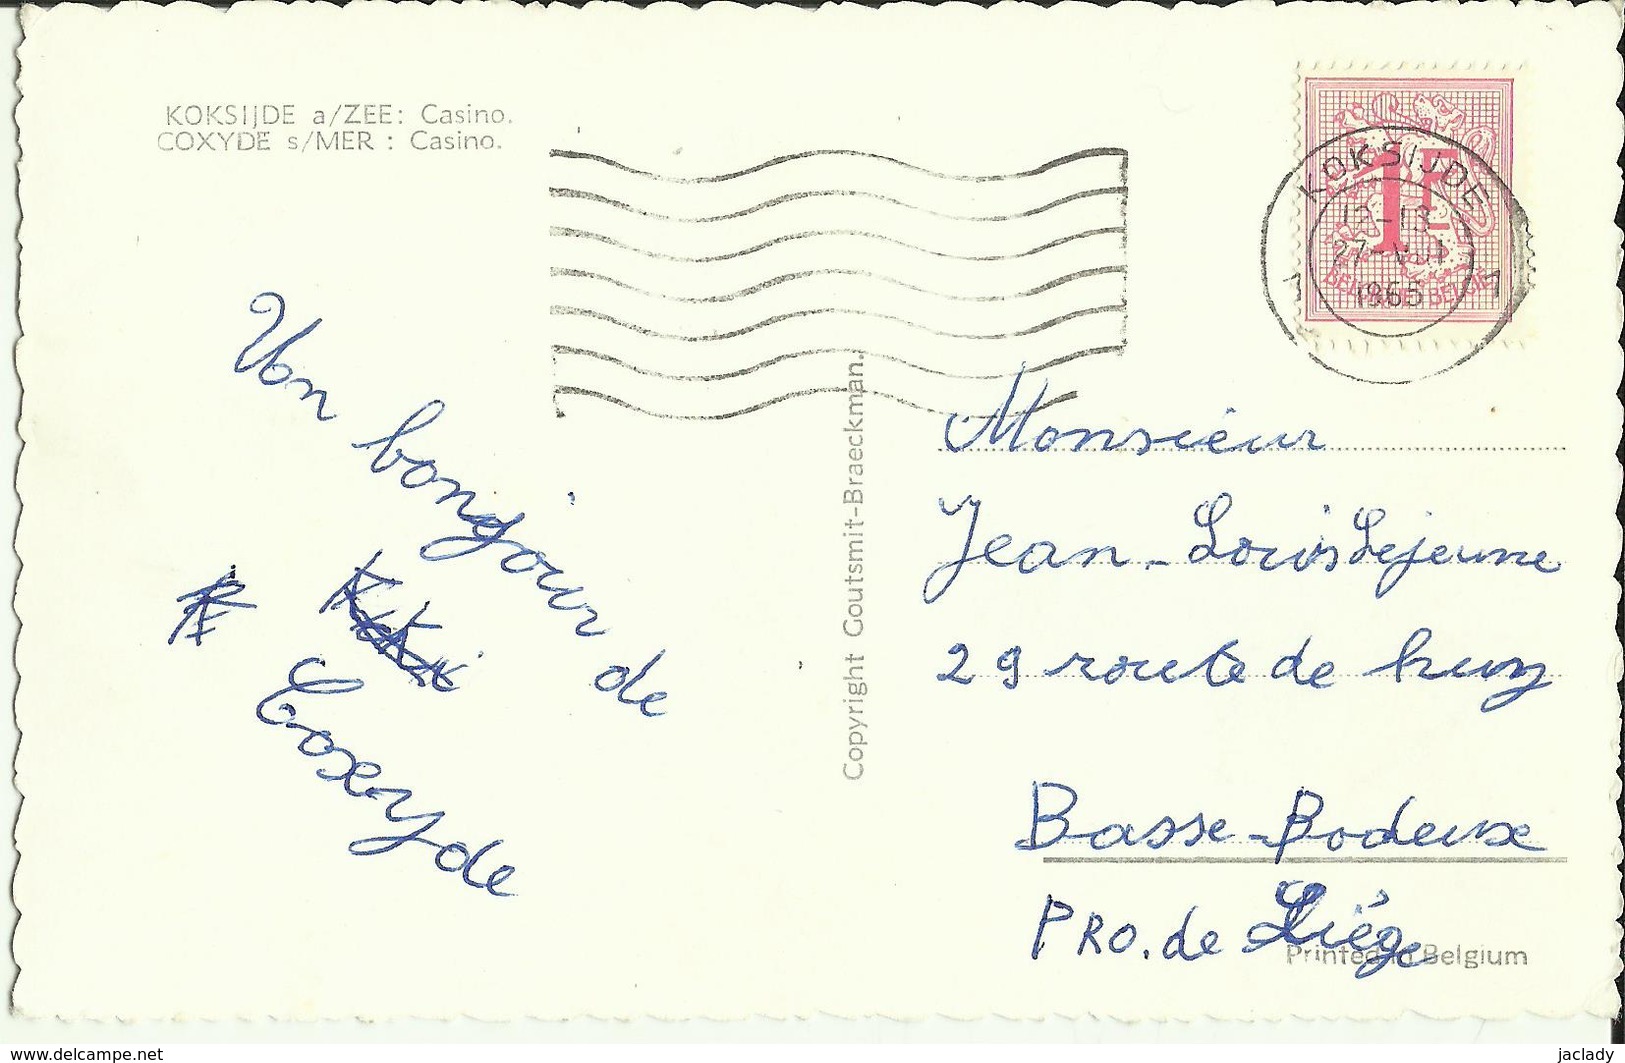 KOKSIJDE a/ZEE: Casino.
COXYDE s/MER : Casino.
KOKSIJDE
27-
1
1
1F
BELGIE
Von
bonjour de
Coxyde
Copyright Coutsmit-Braeckman.
Monsieur
Jean-Louis Lejeune
29 route de huy
Basse-Bodeux
PRO. de Liége
Printed in Belgium
www.delcampe.net
jaclady